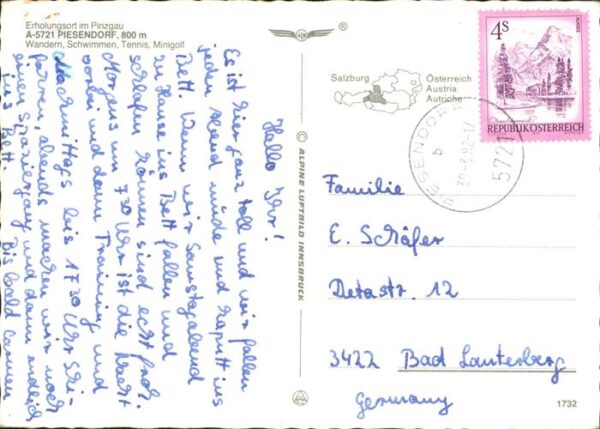 Erholungsort im Pinzgau
A-5721 PIESENDORF, 800 m
Wandern, Schwimmen, Tennis, Minigolf
Hallo Ihr!
Es ist hier ganz toll und wir fallen
jeden Abend müde und kaputt ins
Bett. Wenn wir Samstagabend
zu Hause ins Bett fallen und
schlafen können sind echt froh.
Morgens um 7 30 Uhr ist die Nacht
vorbei und dann Training und
nachmittags bis 17 30 Uhr Ski-
fahren, abends machen wir noch
einen Spaziergang und dann endlich
ins Bett. Bis bald
© ALPINE LUFTBILD INNSBRUCK
Salzburg
Österreich
Austria
Autriche
4S
ALMSEE
REPUBLIK ÖSTERREICH
PIESENDORF
b
5721
Familie
E. Schäfer
Detastr. 12
3422 Bad Lauterberg
Germany
1732